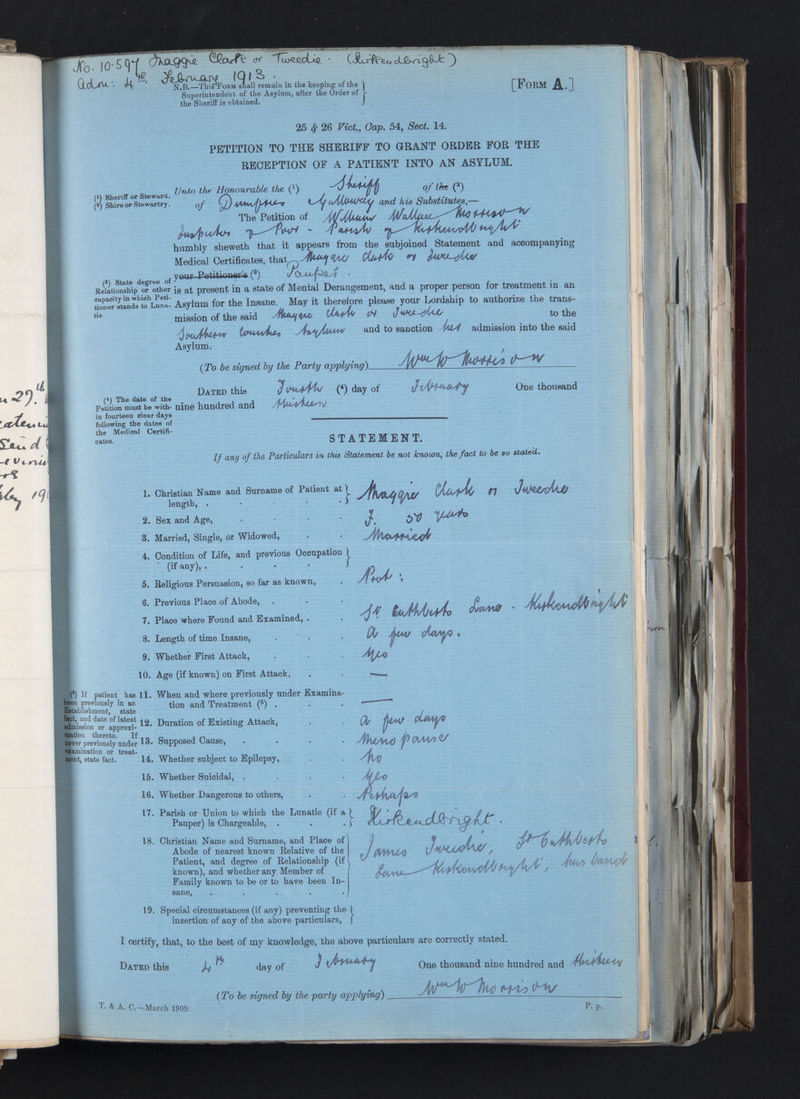 No. 10.597 Maggie Clark or Tweedie. (Kirkcudbright)
Adm: 4th February 1913.
N.B.—This FORM shall remain in the keeping of the
Superintendent of the Asylum, after the Order of
the Sheriff is obtained.
[FORM A.]
25 & 26 Vict., Cap. 54, Sect. 14.
PETITION TO THE SHERIFF TO GRANT ORDER FOR THE
RECEPTION OF A PATIENT INTO AN ASYLUM.
(1) Sheriff or Steward.
(2) Shire or Stewartry.
Unto the Honourable the (1) Sheriff of the (2)
of Dumfries & Galloway and his Substitutes,—
The Petition of William Wallace Morrison
Inspector of Poor - Parish of Kirkcudbright
humbly sheweth that it appears from the subjoined Statement and accompanying
Medical Certificates, that Maggie Clark or Tweedie
your Petitioner's (3) Pauper.
(3) State degree of
Relationship or other
capacity in which Peti-
tioner stands to Luna-
tic
is at present in a state of Mental Derangement, and a proper person for treatment in an
Asylum for the Insane. May it therefore please your Lordship to authorize the trans-
mission of the said Maggie Clark or Tweedie to the
Southern Counties Asylum and to sanction her admission into the said
Asylum.
(To be signed by the Party applying) Wm W Morrison
DATED this Fourth (4) day of February One thousand
nine hundred and thirteen
(4) The date of the
Petition must be with-
in fourteen clear days
following the dates of
the Medical Certifi-
cates.
STATEMENT.
If any of the Particulars in this Statement be not known, the fact to be so stated.
1. Christian Name and Surname of Patient at
length, . Maggie Clark or Tweedie
2. Sex and Age, F. 50 years
3. Married, Single, or Widowed, Married
4. Condition of Life, and previous Occupation
(if any), .
5. Religious Persuasion, so far as known, Prot:
6. Previous Place of Abode, .
7. Place where Found and Examined, . St Cuthberts Lane - Kirkcudbright
8. Length of time Insane, A few days.
9. Whether First Attack, Yes
10. Age (if known) on First Attack, —
11. When and where previously under Examina-
tion and Treatment (5) . —
(5) If patient has
been previously in an
Establishment, state
fact, and date of latest
admission or approxi-
mation thereto. If
never previously under
examination or treat-
ment, state fact.
12. Duration of Existing Attack, A few days
13. Supposed Cause, Menopause
14. Whether subject to Epilepsy, No
15. Whether Suicidal, . Yes
16. Whether Dangerous to others, Perhaps
17. Parish or Union to which the Lunatic (if a
Pauper) is Chargeable, . Kirkcudbright.
18. Christian Name and Surname, and Place of
Abode of nearest known Relative of the
Patient, and degree of Relationship (if
known), and whether any Member of
Family known to be or to have been In-
sane,
James Tweedie, St Cuthberts
Lane Kirkcudbright, husband
19. Special circumstances (if any) preventing the
insertion of any of the above particulars,
I certify, that, to the best of my knowledge, the above particulars are correctly stated.
DATED this 4th day of February One thousand nine hundred and thirteen
(To be signed by the party applying) Wm W Morrison
T. & A. C.—March 1909.
P. p.